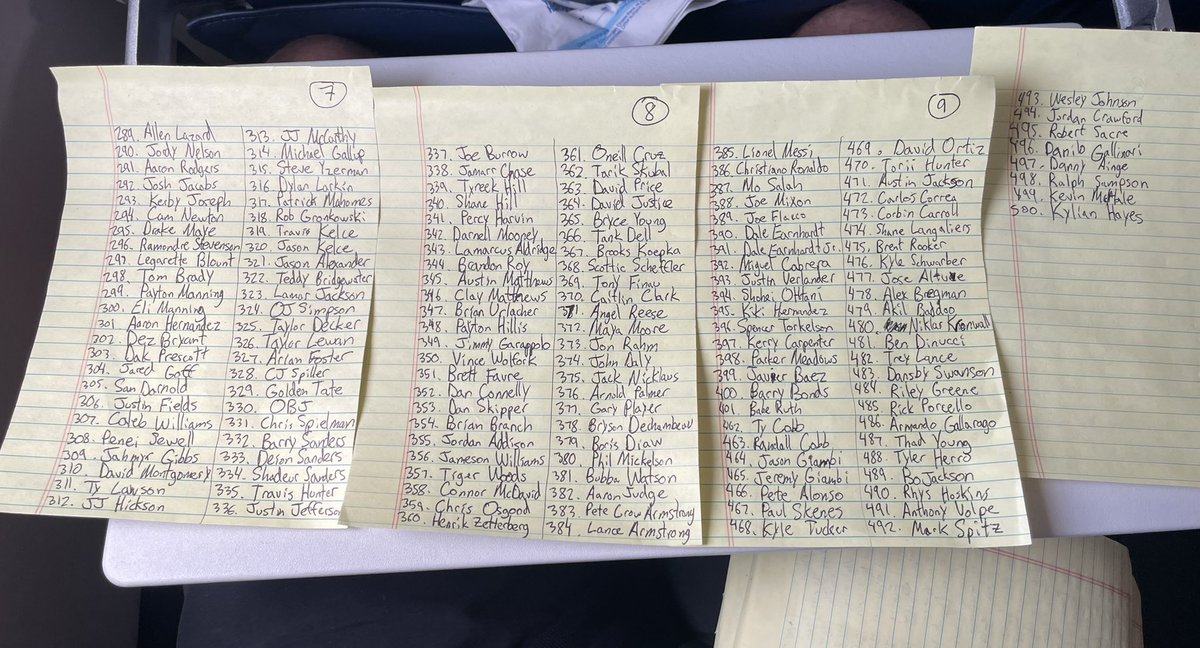 7
289. Allen Lazard
290. Jody Nelson
291. Aaron Rodgers
292. Josh Jacobs
293. Kerby Joseph
294. Cam Newton
295. Drake Maye
296. Ramondre Stevenson
297. Legarette Blount
298. Tom Brady
299. Payton Manning
300. Eli Manning
301. Aaron Hernandez
302. Dez Bryant
303. Dak Prescott
304. Jared Goff
305. Sam Darnold
306. Justin Fields
307. Caleb Williams
308. Penei Jewell
309. Jahmyr Gibbs
310. David Montgomery
311. Ty Lawson
312. JJ Hickson
313. JJ McCarthy
314. Michael Gallup
315. Steve Yzerman
316. Dylan Larkin
317. Patrick Mahomes
318. Rob Gronkowski
319. Travis Kelce
320. Jason Kelce
321. Jason Alexander
322. Teddy Bridgewater
323. Lamar Jackson
324. OJ Simpson
325. Taylor Decker
326. Taylor Lewan
327. Arian Foster
328. CJ Spiller
329. Golden Tate
330. OBJ
331. Chris Spielman
332. Barry Sanders
333. Deion Sanders
334. Shadeur Sanders
335. Travis Hunter
336. Justin Jefferson
8
337. Joe Burrow
338. Jamarr Chase
339. Tyreek Hill
340. Shane Hill
341. Percy Harvin
342. Darnell Mooney
343. Lamarcus Aldridge
344. Brandon Roy
345. Austin Matthews
346. Clay Matthews
347. Brian Urlacher
348. Payton Hillis
349. Jimmy Garappolo
350. Vince Wolfork
351. Brett Favre
352. Dan Connelly
353. Dan Skipper
354. Brian Branch
355. Jordan Addison
356. Jameson Williams
357. Tiger Woods
358. Connor McDavid
359. Chris Osgood
360. Henrik Zetterberg
361. Oneill Cruz
362. Tarik Skubal
363. David Price
364. David Justice
365. Bryce Young
366. Tank Dell
367. Brooks Koepka
368. Scottie Scheffler
369. Tony Finau
370. Caitlin Clark
371. Angel Reese
372. Maya Moore
373. Jon Rahm
374. John Daly
375. Jack Nicklaus
376. Arnold Palmer
377. Gary Player
378. Bryson Dechambeau
379. Boris Diaw
380. Phil Mickelson
381. Bubba Watson
382. Aaron Judge
383. Pete Crow Armstrong
384. Lance Armstrong
9
385. Lionel Messi
386. Christiano Ronaldo
387. Mo Salah
388. Joe Mixon
389. Joe Flacco
390. Dale Earnhardt
391. Dale Earnhardt Jr.
392. Miguel Cabrera
393. Justin Verlander
394. Shohei Ohtani
395. Kiki Hernandez
396. Spencer Torkelson
397. Kerry Carpenter
398. Parker Meadows
399. Javier Baez
400. Barry Bonds
401. Babe Ruth
462. Ty Cobb
463. Randall Cobb
464. Jason Giambi
465. Jeremy Giambi
466. Pete Alonso
467. Paul Skenes
468. Kyle Tucker
469. David Ortiz
470. Torii Hunter
471. Austin Jackson
472. Carlos Correa
473. Corbin Carroll
474. Shane Langaliers
475. Brent Rooker
476. Kyle Schwarber
477. Jose Altuve
478. Alex Bregman
479. Akil Baddoo
480. Niklas Kronwall
481. Ben Dinucci
482. Trey Lance
483. Dansby Swanson
484. Riley Greene
485. Rick Porcello
486. Armando Gallarago
487. Thad Young
488. Tyler Herro
489. Bo Jackson
490. Rhys Hoskins
491. Anthony Volpe
492. Mark Spitz
493. Wesley Johnson
494. Jordan Crawford
495. Robert Sacre
496. Danilo Gallinari
497. Danny Ainge
498. Ralph Sampson
499. Kevin McHale
500. Kylian Hayes